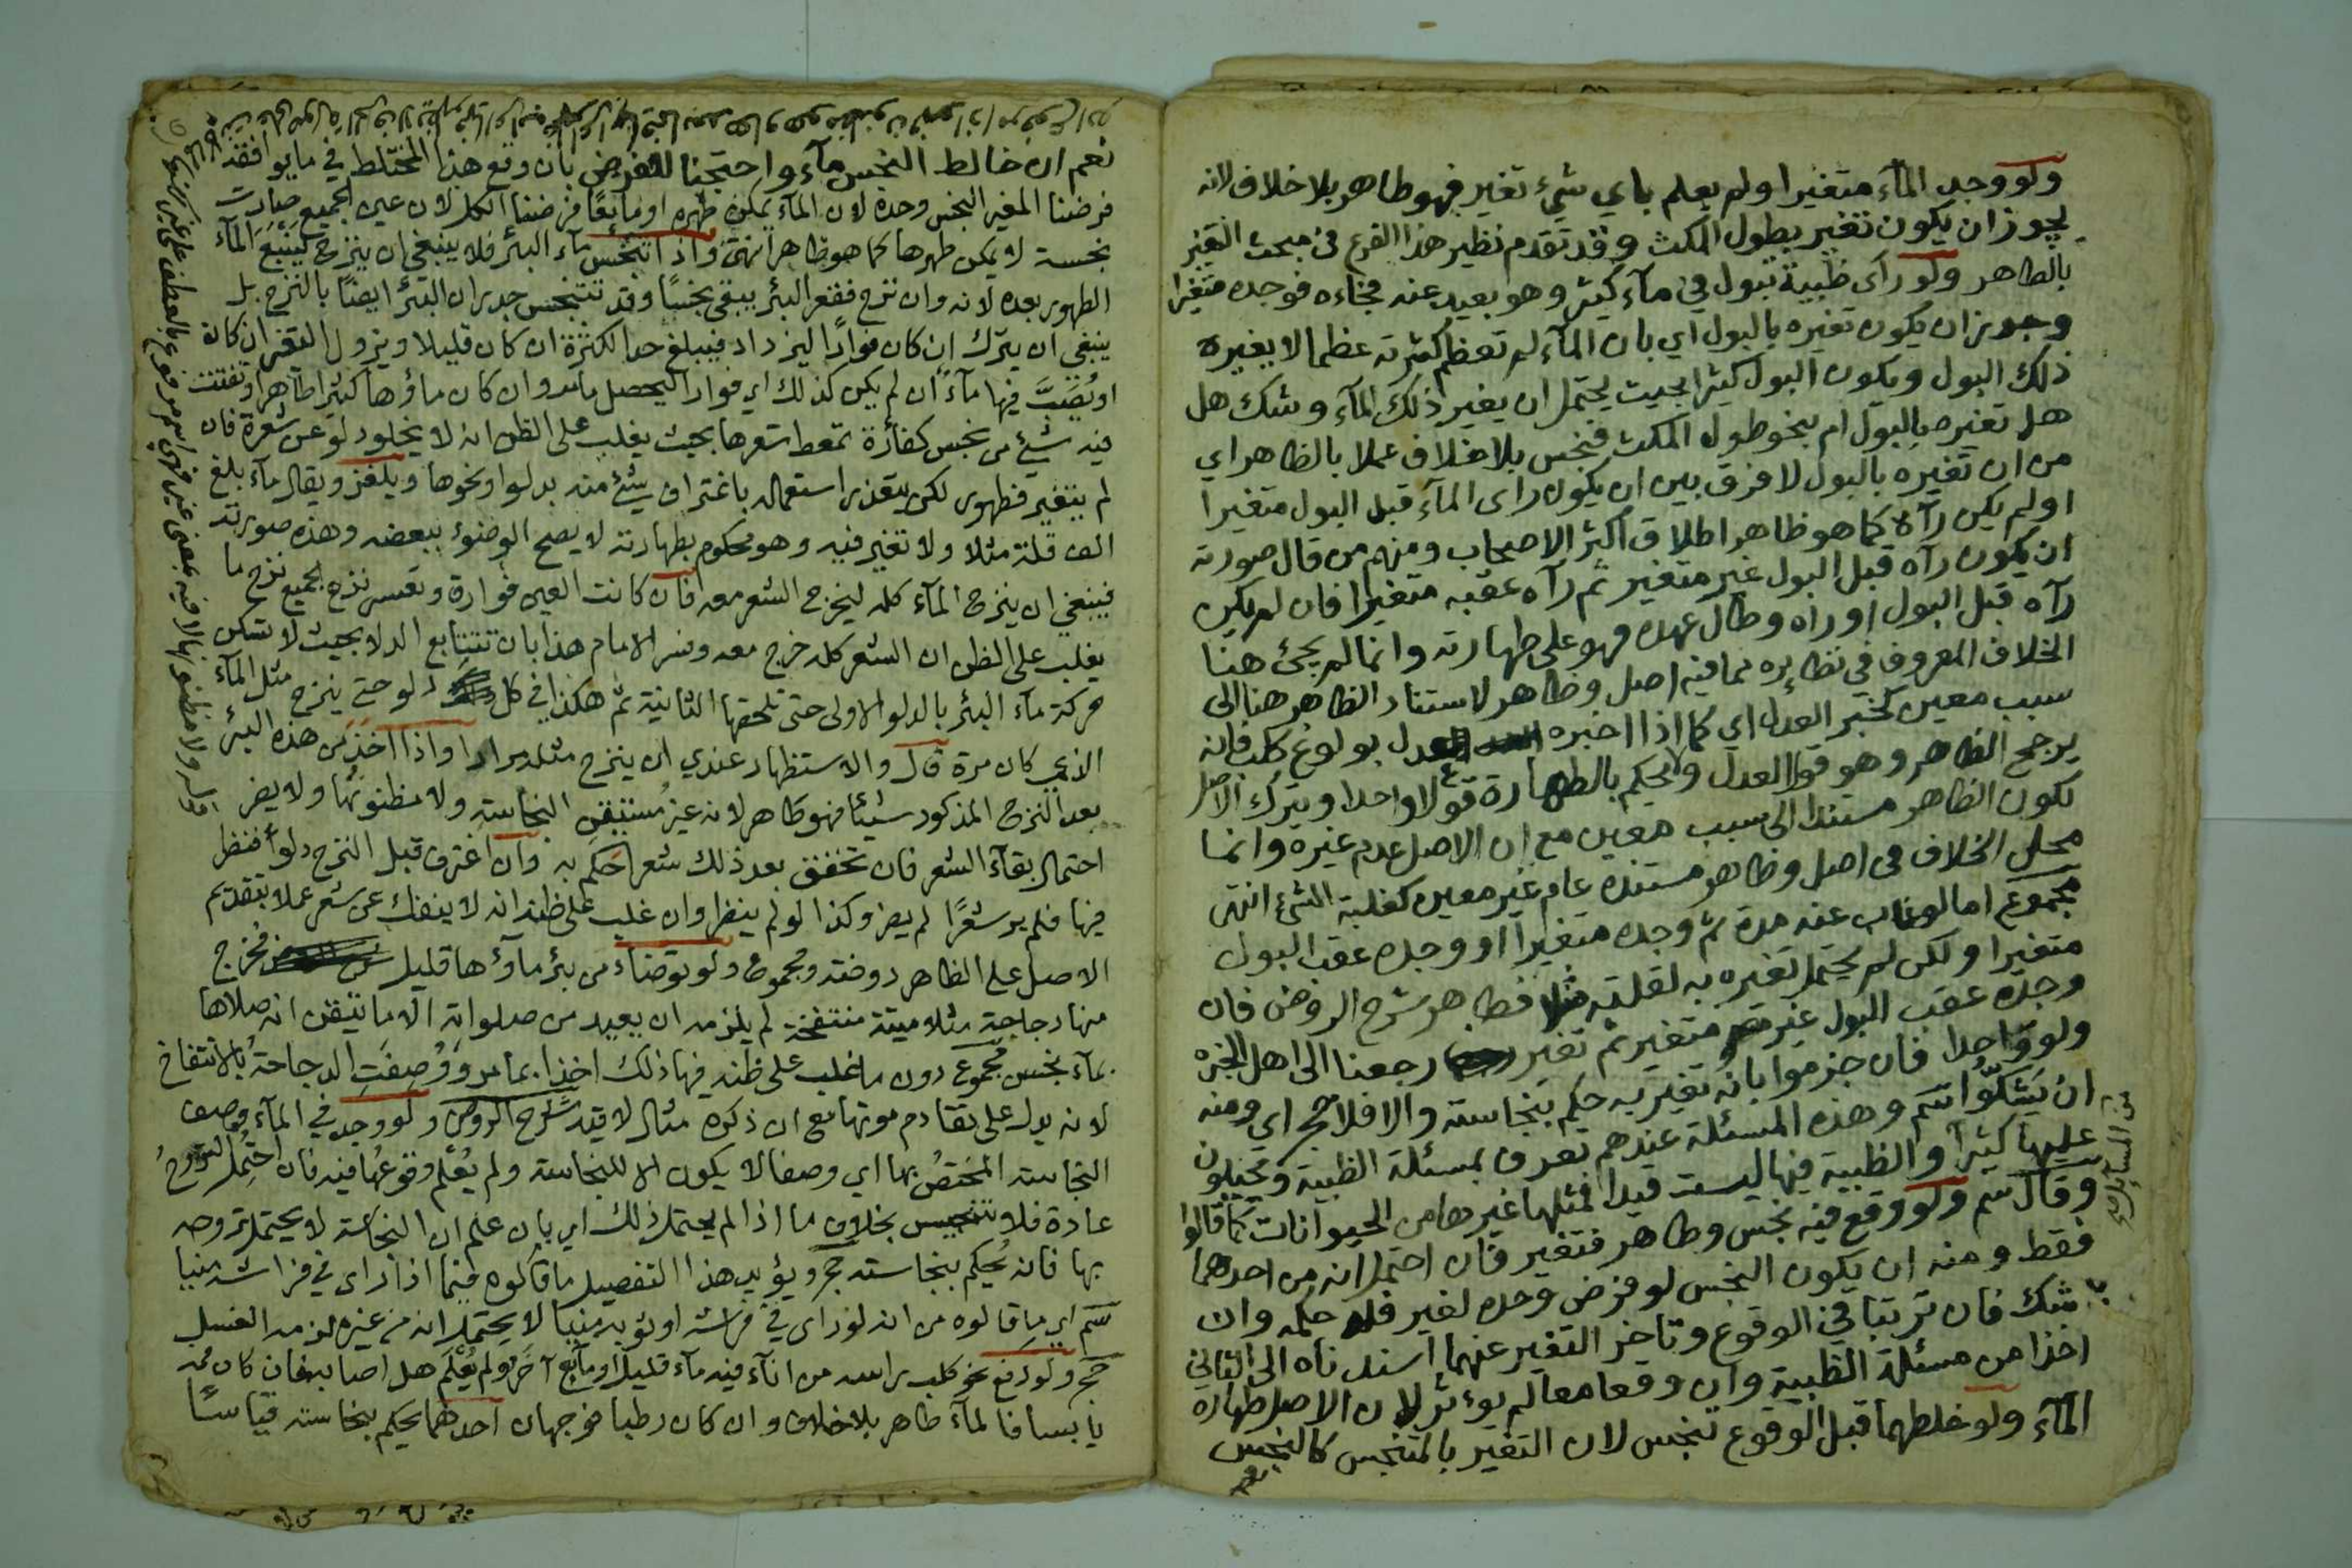 ولو وجد المآء متغيرا ولم يعلم باي شيء تغير فهو طاهر بلا خلاف لانه
يجوز ان يكون تغير بطول المكث وقد تقدم نظير هذا الفرع في مبحث التغير
بالطاهر ولو رأى ظبية تبول في مآء كثير وهو بعيد عنه فجاءه فوجده متغيرا
وجوز ان يكون تغيره بالبول اي بان المآء لم تعظم كثرته عظما لا يغيره
ذلك البول ويكون البول كثيرا بحيث يحتمل ان يغير ذلك المآء وشك هل
هل تغيره بالبول ام بنحو طول المكث فنجس بلا خلاف عملا بالظاهر اي
من ان تغيره بالبول لا فرق بين ان يكون راى المآء قبل البول متغيرا
او لم يكن رآه كما هو ظاهر اطلاق أكثر الاصحاب ومنهم من قال صورته
ان يكون رآه قبل البول غير متغير ثم رآه عقبه متغيرا فان لم يكن
رآه قبل البول او رآه وطال عهده فهو على طهارته وانما لم يجئ هنا
الخلاف المعروف في نظايره مما فيه اصل وظاهر لاستناد الظاهر هنا الى
سبب معين كخبر العدل اي كما اذا اخبره العدل بولوغ كلب فانه
يرجح الظاهر وهو قول العدل ولا يحكم بالطهارة قولا واحدا ويترك الاصل
لكون الظاهر مستندا الى سبب معين مع ان الاصل عدم غيره وانما
محل الخلاف في اصل وظاهر مستنده عام غير معين كغلبة الشيء انتهى
مجموع اما لو غاب عنه مدة ثم وجده متغيرا او وجده عقب البول
متغيرا ولكن لم يحتمل تغيره به لقلته مثلا فطاهر شرح الروض فان
وجده عقب البول غير متغير ثم تغير رجعنا الى اهل الخبرة
ولو واحدا فان جزموا بانه تغير به حكم بنجاسته والا فلا حج اي ومنه
ان يشكوا سم وهذه المسئلة عندهم تعرف بمسئلة الظبية ويحيلون
عليها كثيرا والظبية فيها ليست قيدا فمثلها غيرها من الحيوانات كما قالوا
وقال سم ولو وقع فيه نجس وطاهر فتغير فان احتمل انه من احدهما
فقط ومنه ان يكون النجس لو فرض وحده لغير فله حكمه وان
شك فان ترتبا في الوقوع وتاخر التغير عنهما اسندناه الى الثاني
اخذا من مسئلة الظبية وان وقعا معا لم يوءثر لان الاصل طهارة
المآء ولو خلطهما قبل الوقوع تنجس لان التغير بالمتنجس كالنجس
نعم
نعم ان خالط النجس مآء واحتجنا للفرض بان وقع هذا المختلط في ما يوافقه
فرضنا المغير النجس وحده لان المآء يمكن طهره او مائعًا فرضنا الكل لان عين الجميع صارت
نجسة لا يمكن طهرها كما هو ظاهر انتهى واذا تنجس مآء البئر فلا ينبغي ان ينزح لينبع المآء
الطهور بعده لانه وان نزح فقعر البئر يبقى نجسًا وقد تتنجس جدران البئر ايضًا بالنزح بل
ينبغي ان يترك ان كان فوارًا ليزداد فيبلغ حد الكثرة ان كان قليلا ويزول التغير ان كان
او يُصَبَّ فيها مآءً ان لم يكن كذلك اي فوارا ليحصل ما مر وان كان ماؤها كثيرا طاهرا وتفتت
فيه شئ من نجس كفأرة تمعط شعرها بحيث يغلب على الظن انه لا يخلو دلو عن شعرة فان
لم يتغير فطهور لكن يتعذر استعماله باغتراف شئ منه بدلو او نحوها ويلغز ويقال مآء بلغ
الف قلة مثلا ولا تغير فيه وهو محكوم بطهارته لا يصح الوضوء ببعضه وهذه صورته
فينبغي ان ينزح المآء كله ليخرج الشعر معه فان كانت العين فوارة وتعسر نزح الجميع نزح ما
يغلب على الظن ان الشعر كله خرج معه وفسر الامام هذا بان تتتابع الدلا بحيث لا تسكن
حركة مآء البئر بالدلو الاولى حتى تلحقها الثانية ثم هكذا في كل دلو حتى ينزح مثل المآء
الذي كان مرة قال والاستظهار عندي ان ينزح مثله مرارا واذا اخذ من هذه البئر
بعد النزح المذكور شيئا فهو طاهر لانه غير مُستيقن النجاسة ولا مظنونها ولا يضر
احتمال بقآء الشعر فان تحقق بعد ذلك شعرا حكم به وان اغترف قبل النزح دلوًا فنظر
فيها فلم ير شعرًا لم يضر وكذا لو لم ينظر وان غلب على ظنه انه لا ينفك عن شعر عملا بتقديم
الاصل على الظاهر روضة ومجموع ولو توضاء من بئر ماؤها قليل فخرج
منها دجاجة مثلا ميتة منتفخة لم يلزمه ان يعيد من صلواته الا ما تيقن انه صلاها
بمآء نجس مجموع دون ما غلب على ظنه فيها ذلك اخذا بما مر ووُصِفَت الدجاجة بالانتفاخ
لانه يدل على تقادم موتها مع ان ذكره مثال لا قيد شرح الروض ولو وجد في المآء وصف
النجاسة المختصُ بها اي وصفا لا يكون الا للنجاسة ولم يُعْلم وقوعُها فيه فان احتُمل التروحُ
عادة فلا تنجيس بخلاف ما اذا لم يحتمل ذلك اي بان علم ان النجاسة لا يحتمل تروحه
بها فانه يُحكم بنجاسته حج ويؤيد هذا التفصيل ما قالوه فيما اذا راى في فراشه منيا
سم اي ما قالوه من انه لو راى في فراشه او ثوبه منيا لا يحتمل انه من غيره لزمه الغسل
حج ولو رفع نحو كلب براسه من انآء فيه مآء قليل او مآئع آخر ولم يُعْلَم هل اصابه فان كان فمه
يابسا فالمآء طاهر بلا خلاف وان كان رطبا فوجهان احدهما يحكم بنجاسته قياسًا